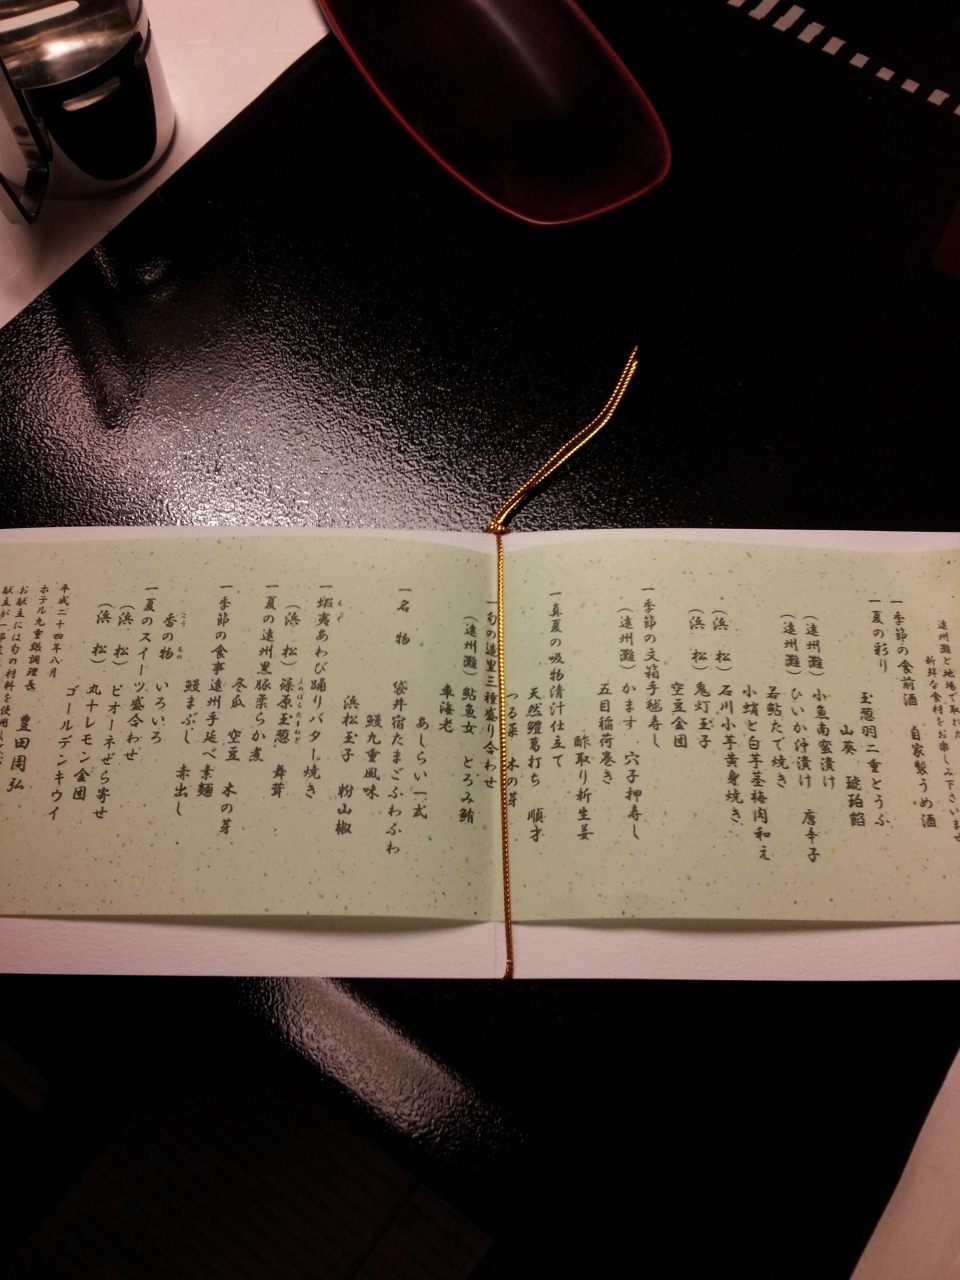 遠州灘と地場で取れた
新鮮な食材をお楽しみ下さいませ
一季節の食前酒 自家製うめ酒
一夏の彩り 玉葱羽二重とうふ
山葵 琥珀餡
（遠州灘）小魚南蛮漬け 唐辛子
（遠州灘）ひいか沖漬け
若鮎たで焼き
小蛸と白芋茎梅肉和え
（浜 松）石川小芋黄身焼き
（浜 松）鬼灯玉子
空豆金団
一季節の文箱手毬寿し
（遠州灘）かます 穴子押寿し
五目稲荷巻き
酢取り新生姜
一真夏の吸物清汁仕立て
天然鱧葛打ち 順才
つる菜 木の芽
一旬の遠里三種盛り合わせ
（遠州灘）鮎魚女 とろみ鮪
車海老
あしらい一式
一名 物 袋井宿たまごふわふわ
鰻九重風味
浜松玉子 粉山椒
一蝦夷あわび踊りバター焼き
（浜 松）篠原玉葱 舞茸
一夏の遠州黒豚柔らか煮
冬瓜 空豆 木の芽
一季節の食事遠州手延べ素麺
鰻まぶし 赤出し
香の物 いろいろ
一夏のスイーツ盛合わせ
（浜 松）ピオーネぜら寄せ
（浜 松）丸ナレモン金団
ゴールデンキウイ
平成二十四年八月
ホテル九重 総調理長 豊田周弘
お献立には旬の材料を使用して